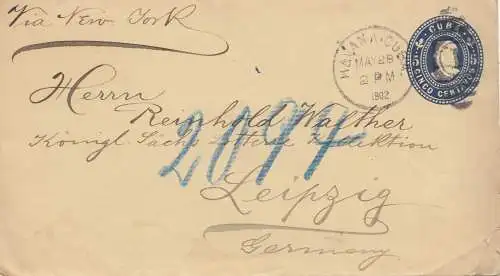 Via New York
HABANA, CUBA
MAY 28
2 PM
1902
CUBA
5 5
CINCO CENTAVOS
Herrn
Reinhold Walther
Königl. Sächs. Lotterie
2094
Leipzig
Germany